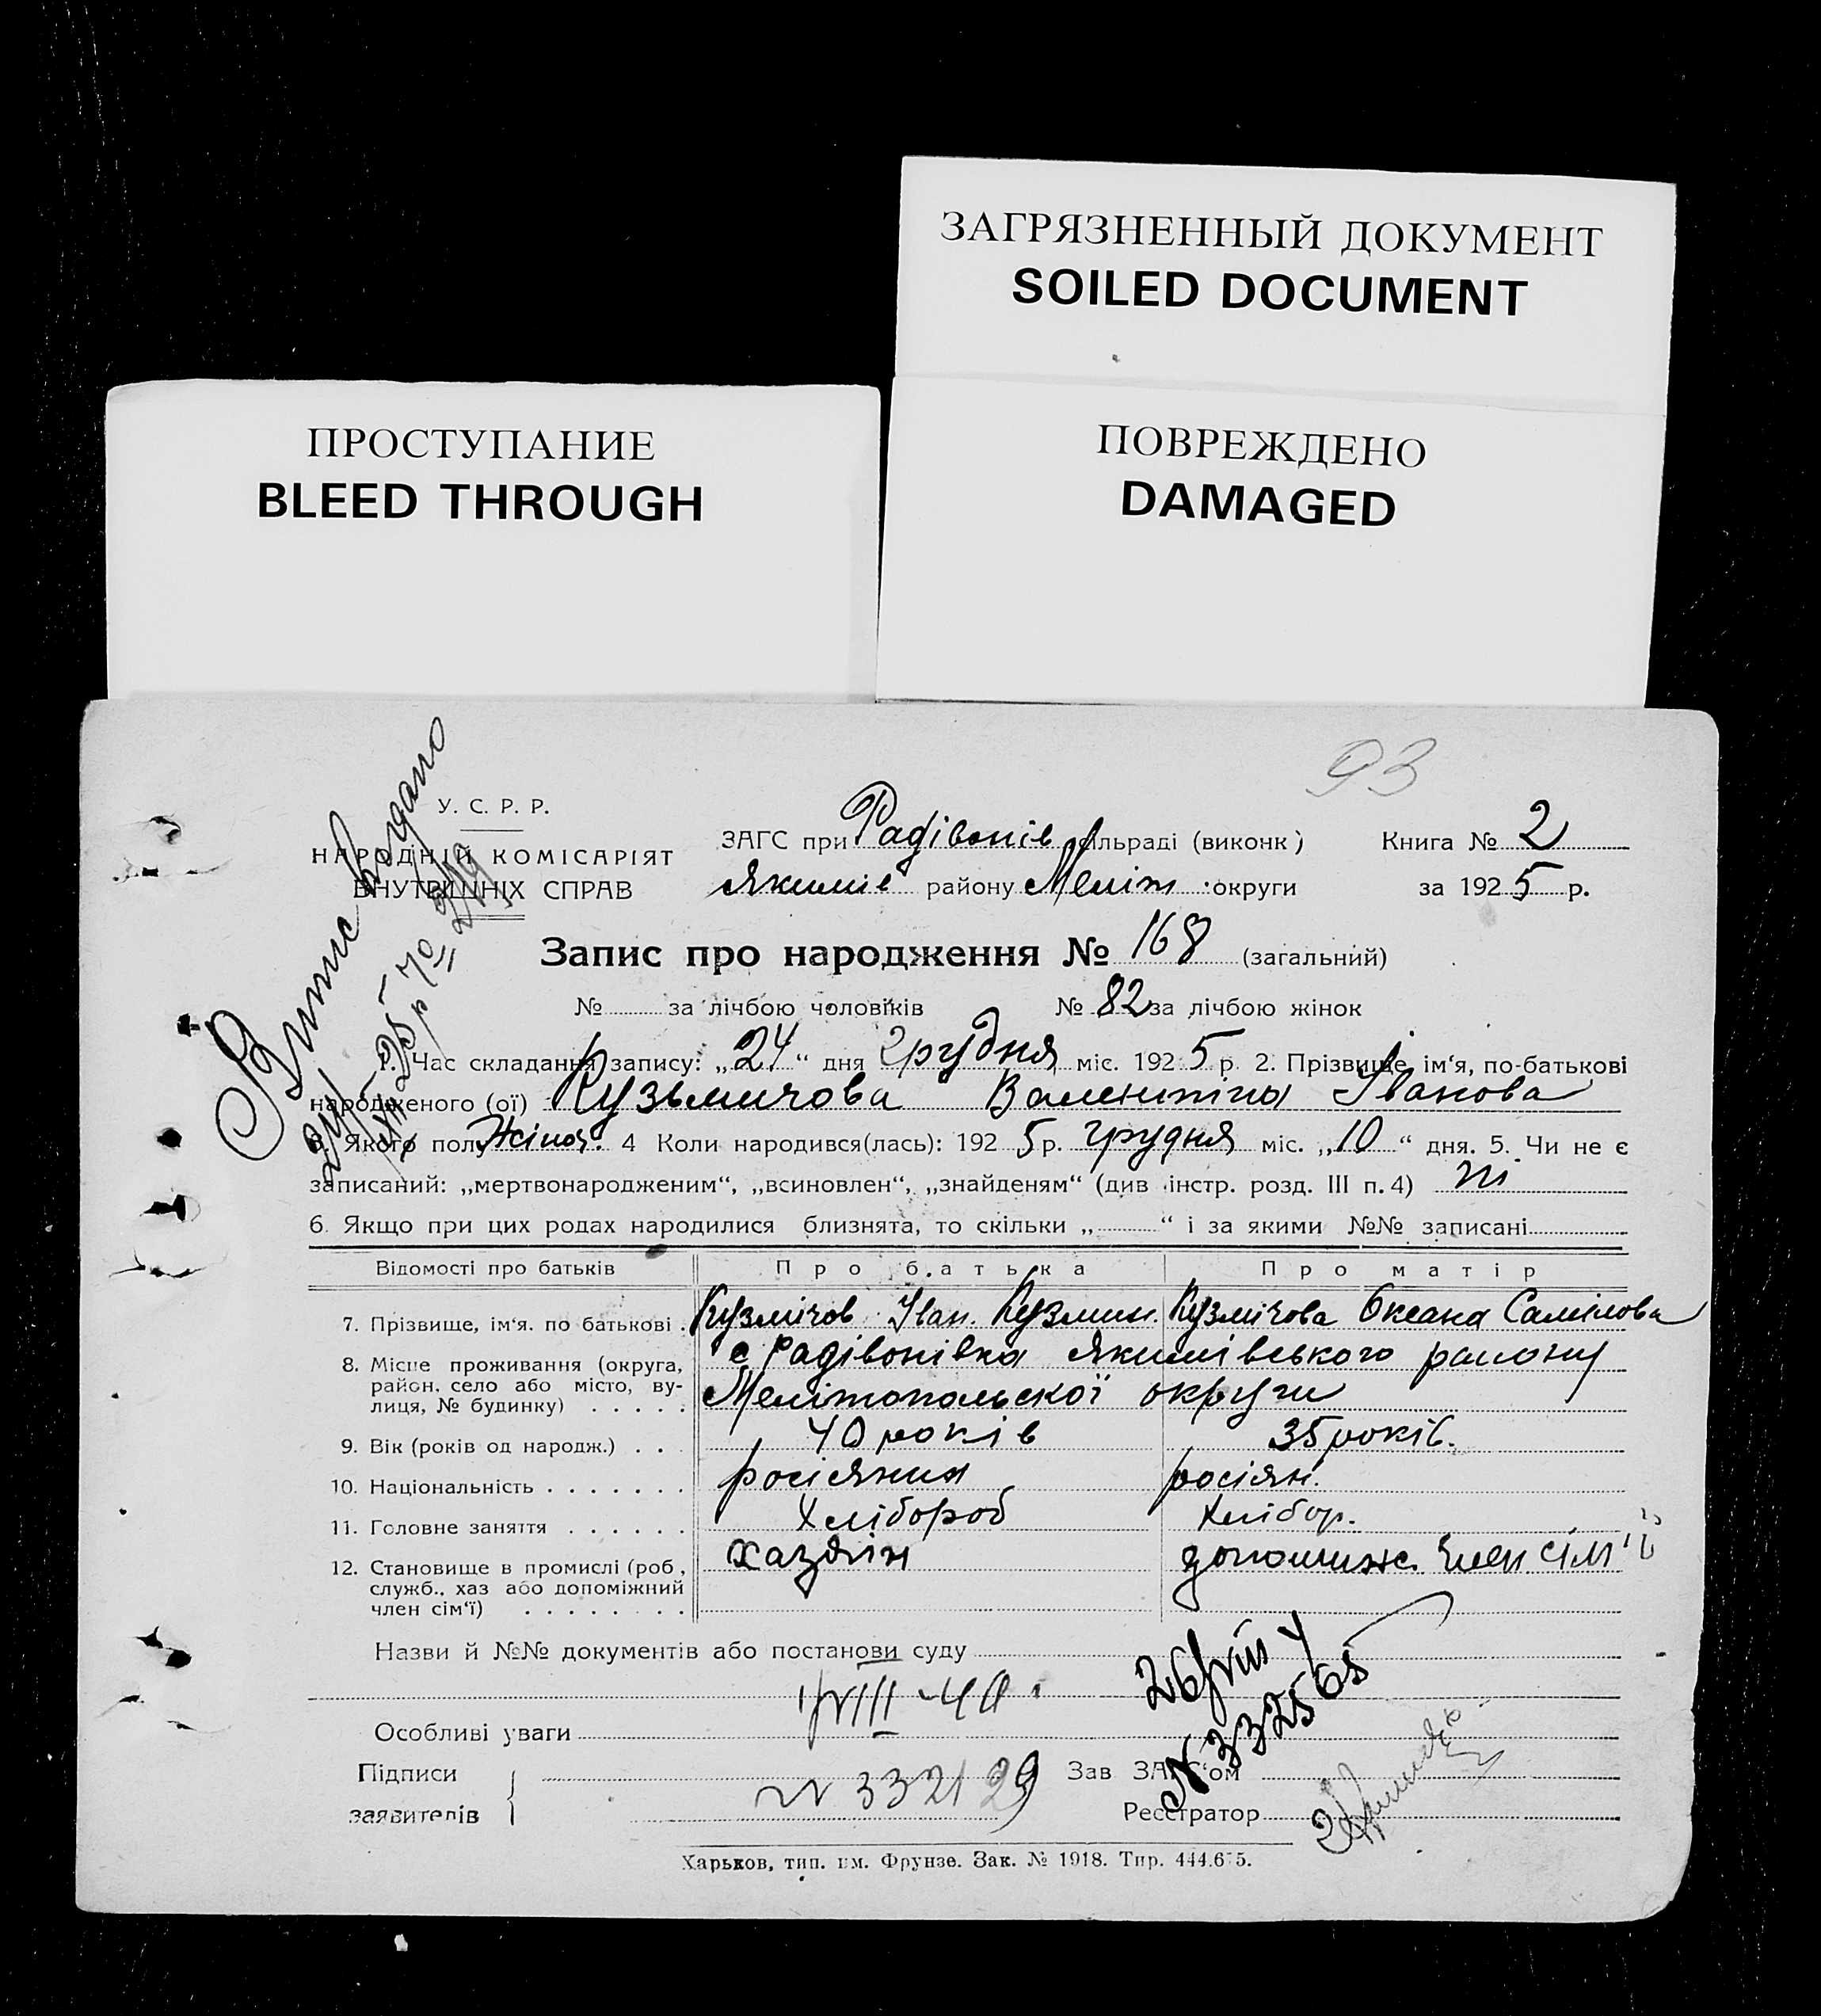 ЗАГРЯЗНЕННЫЙ ДОКУМЕНТ
SOILED DOCUMENT
ПРОСТУПАНИЕ
BLEED THROUGH
ПОВРЕЖДЕНО
DAMAGED
93
У. С. Р. Р.
НАРОДНІЙ КОМІСАРІЯТ
ВНУТРІШНІХ СПРАВ
Витис видано
ЗАГС при Радівонів сільраді (виконк) Книга № 2
Якимів району Меліт округи за 1925 р.
Запис про народження № 168 (загальний)
№ за лічбою чоловіків № 82 за лічбою жінок
1. Час складання запису: „24“ дня грудня міс. 1925 р. 2. Прізвище, ім‘я, по-батькові
народженого (ої) Кузьмичова Валентіна Іванова
3. Якого полу жіноч. 4 Коли народився(лась): 1925 р. грудня міс. „10“ дня. 5. Чи не є
записаний: „мертвонародженим“, „всиновлен“, „знайденям“ (див інстр. розд. III п. 4) ні
6. Якщо при цих родах народилися близнята, то скільки „ “ і за якими №№ записані
Відомості про батьків Про батька Про матір
7. Прізвище, ім‘я. по батькові Кузмічов Іван Кузмин. Кузмічова Оксана Самілова
8. Місце проживання (округа, район, село або місто, вулиця, № будинку) с Радівонівка Якимівського району
Мелітопольскої округи
9. Вік (років од народж.) 40 років 35 років.
10. Національність росіянин росіян.
11. Головне заняття Хлібороб Хлібор.
12. Становище в промислі (роб, служб., хаз або допоміжний член сім‘ї) хазяїн допоміжн. член сім'ї
Назви й №№ документів або постанови суду
Особливі уваги
Підписи
заявителів
N 332129
N 332565
Зав ЗАГС‘ом
Реєстратор
Харьков, тип. им. Фрунзе. Зак. № 1918. Тир. 444.675.